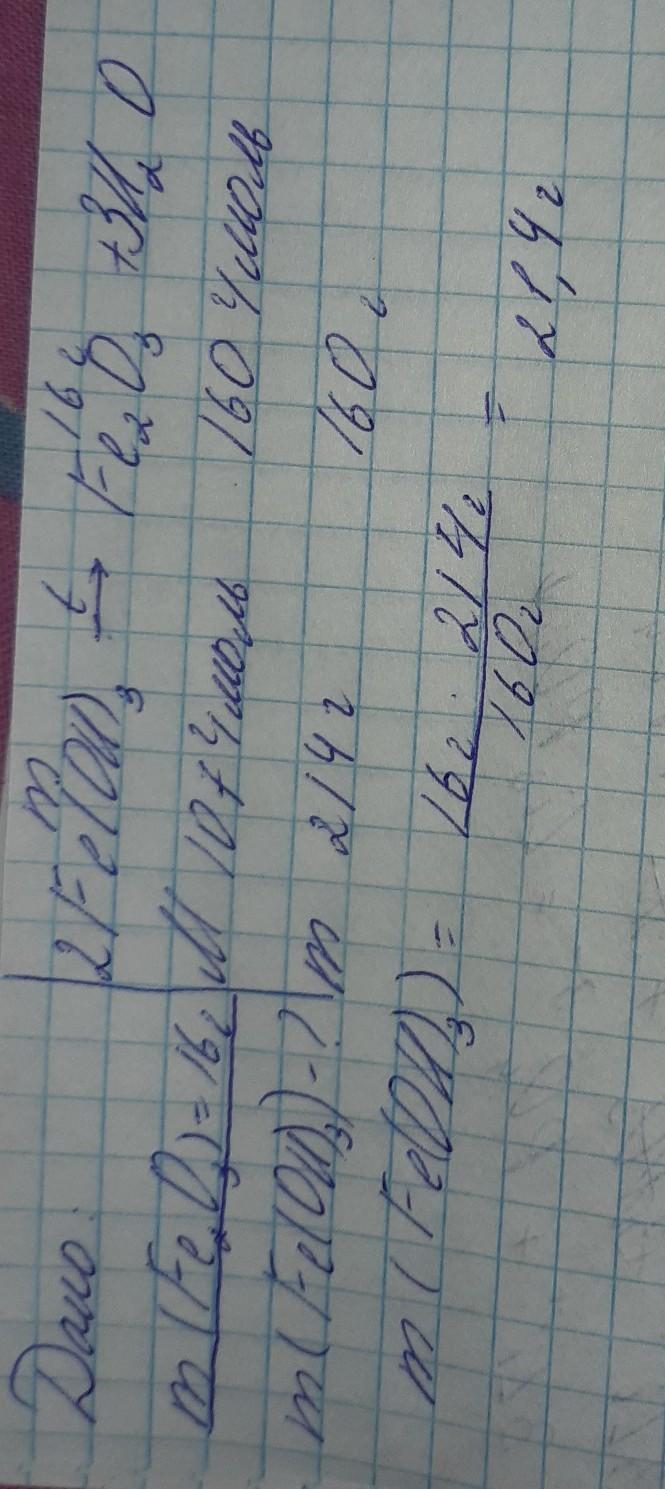 Дано:
m (Fe₂O₃) = 16г
m (Fe(OH)₃) - ?
m 16 г
2Fe(OH)₃ t→ Fe₂O₃ + 3H₂O
M 107 г/моль 160 г/моль
m 214 г 160 г
m (Fe(OH)₃) = 16г · 214г / 160г = 21,4г